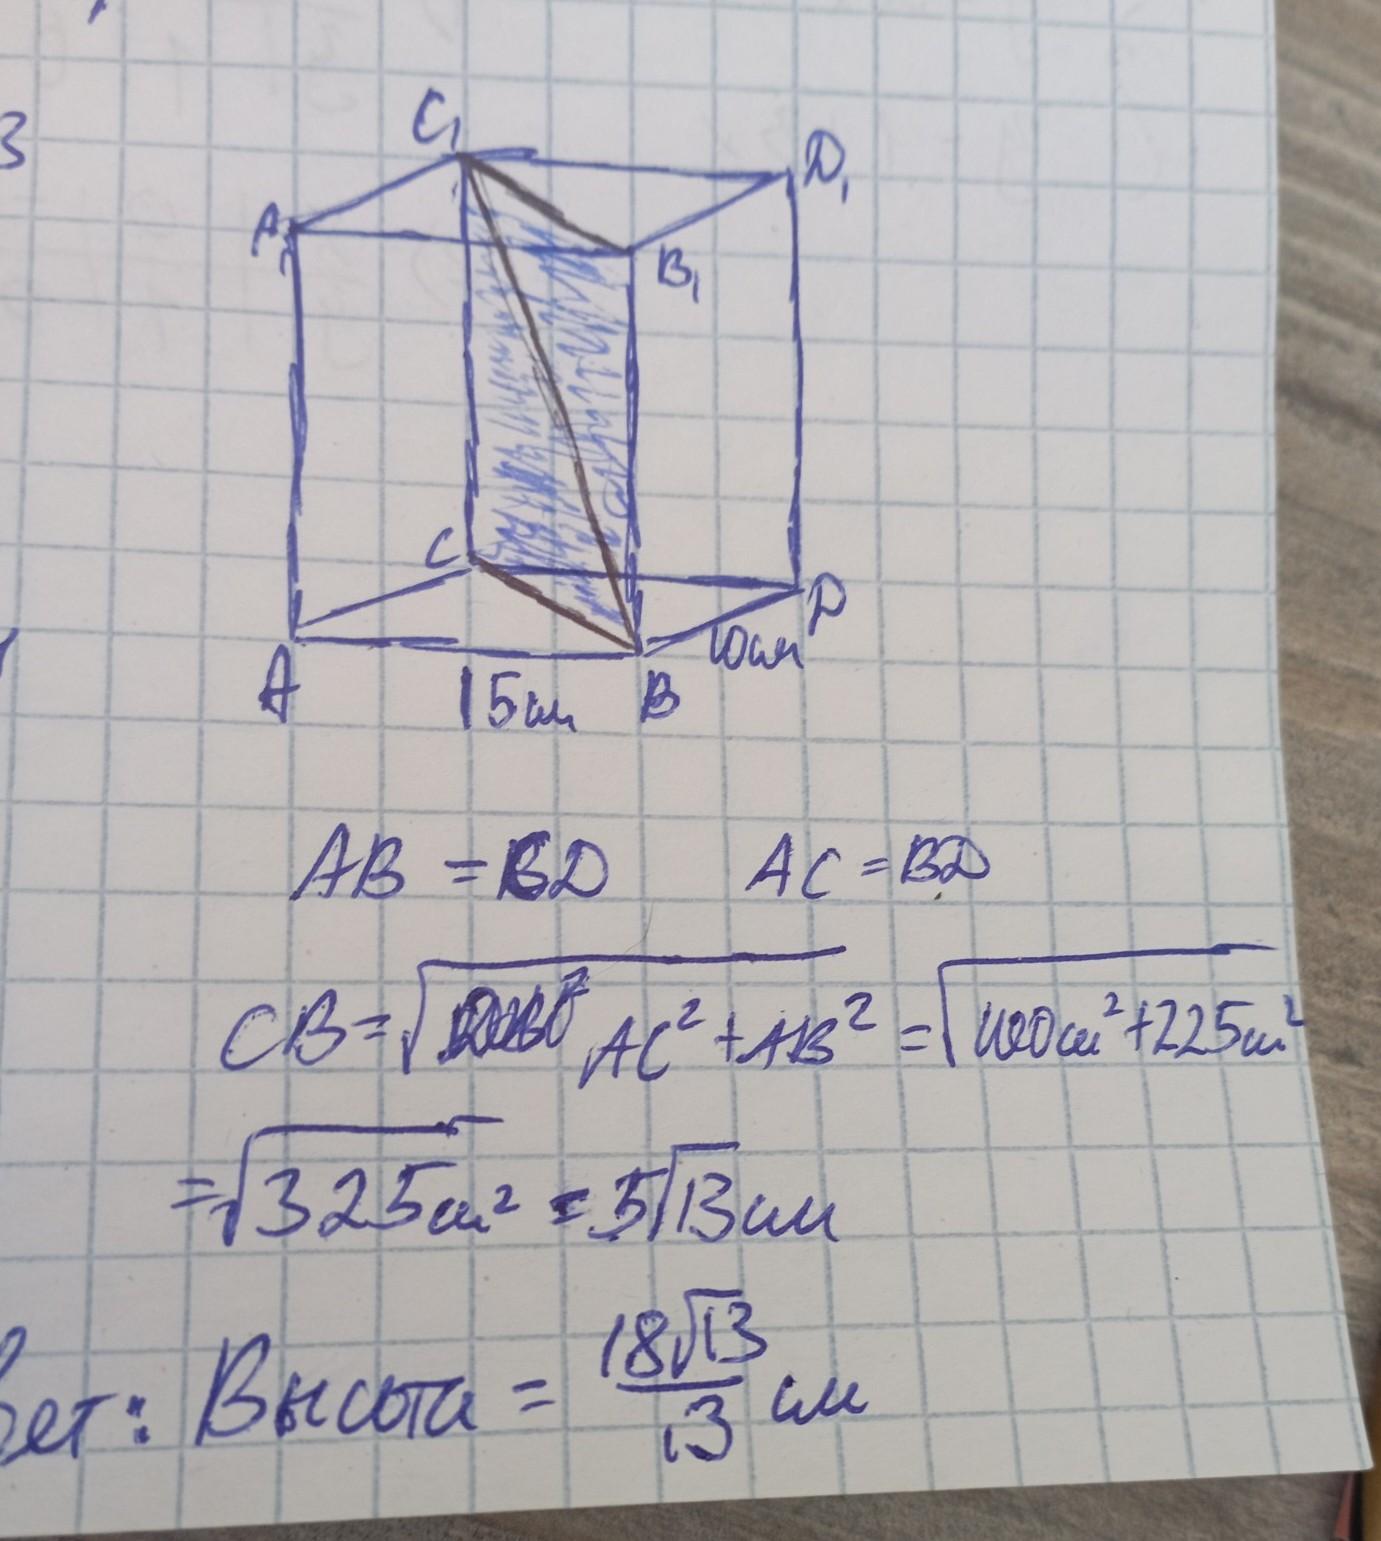 3
C₁
D₁
A₁
B₁
C
D
10см
A
15см
B
AB = CD AC = BD
CB = √AC² + AB² = √100см² + 225см²
= √325см² = 5√13 см
вет: Высота = 18√13/13 см